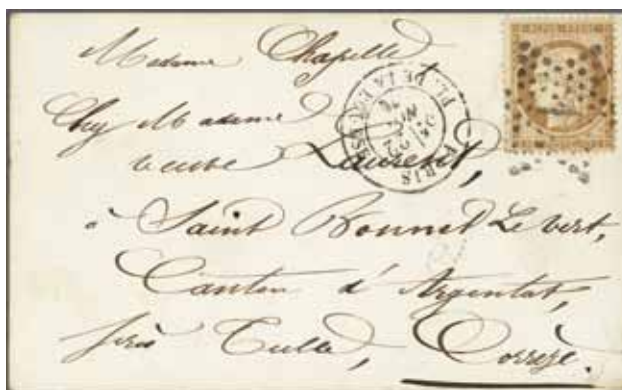 Madame Chapelle
Chez Madame
veuve Laurent,
à Saint Bonnet Le vert,
Canton d'Argentat,
près Tulle, Corrèze.
PARIS
PL. DE LA BOURSE